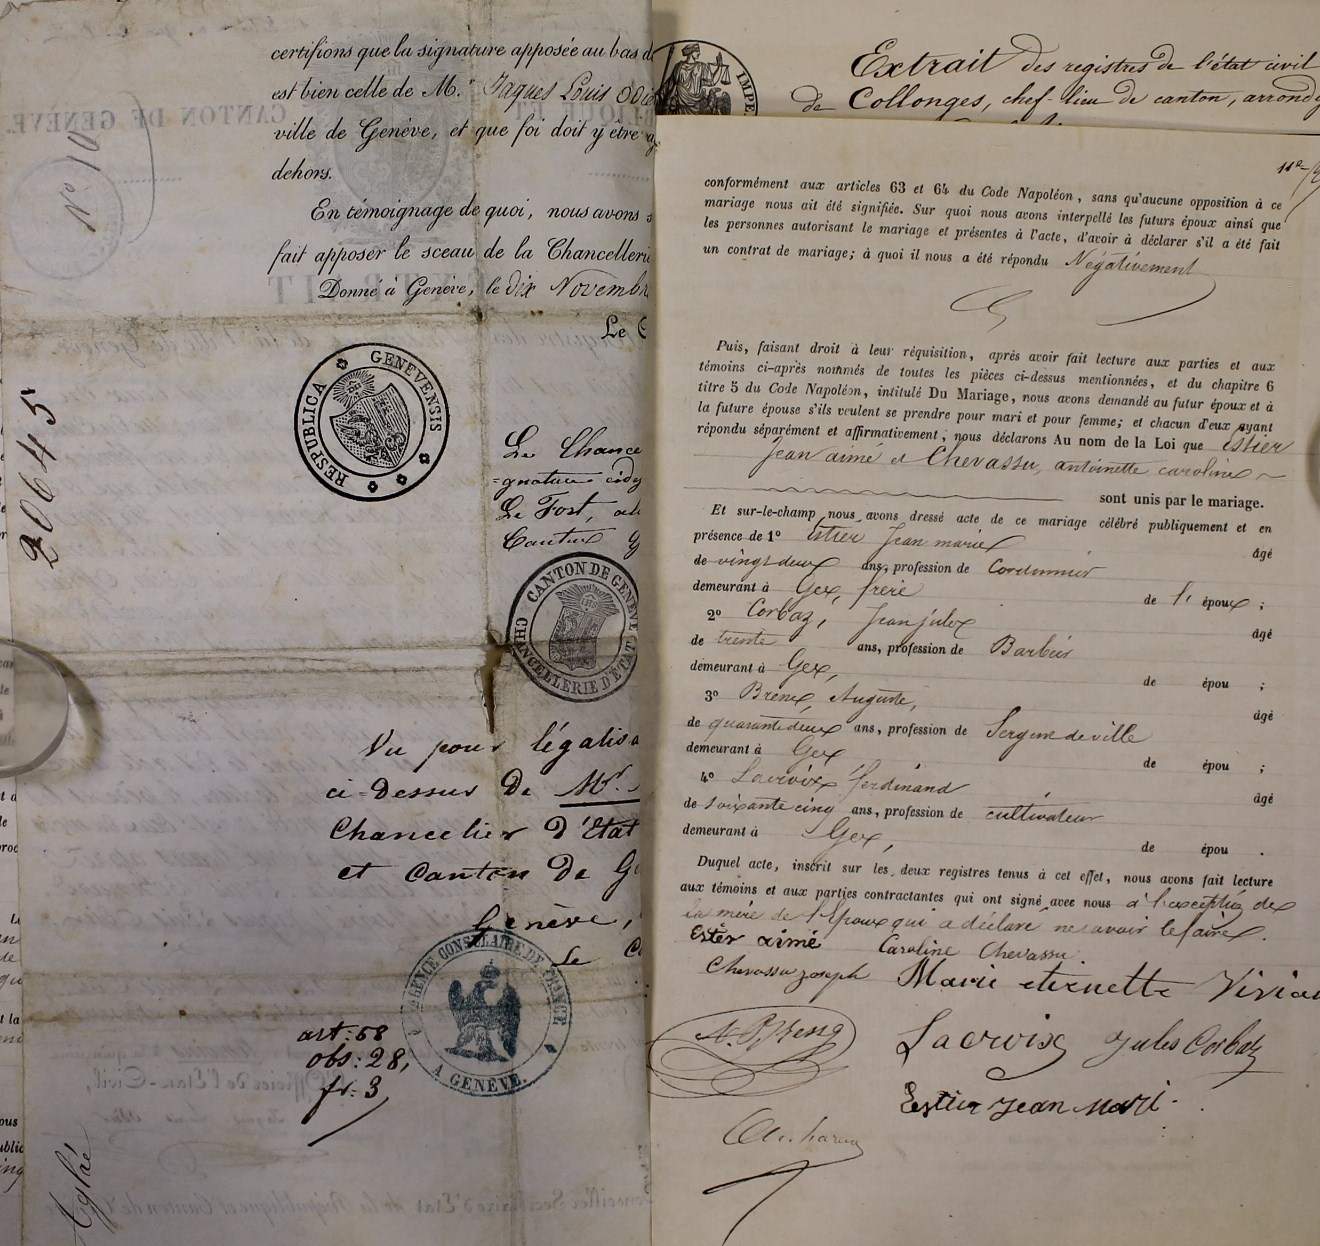 certifions que la signature apposée au bas d
est bien celle de M.r Jaques Louis Odi
ville de Genève, et que foi doit y être
dehors.
En témoignage de quoi, nous avons s
fait apposer le sceau de la Chancelleri
Donné à Genève, le dix Novembr
Le C
CANTON DE GENÈVE.
No 10
20645
RESPUBLICA GENEVENSIS
Le Chance
gnature
Le Fort,
Canton
CANTON DE GENÈVE
CHANCELLERIE D'ÉTAT
Vu pour légalisa
ci-dessus de Mr.
Chancelier d'Etat
et Canton de G
Genève,
Le C
AGENCE CONSULAIRE DE FRANCE
A GENÈVE.
art: 58
obs: 28,
fr: 3
IMPE
Extrait des registres de l'état civil
de Collonges, chef-lieu de canton, arrond
conformément aux articles 63 et 64 du Code Napoléon, sans qu'aucune opposition à ce
mariage nous ait été signifiée. Sur quoi nous avons interpellé les futurs époux ainsi que
les personnes autorisant le mariage et présentes à l'acte, d'avoir à déclarer s'il a été fait
un contrat de mariage; à quoi il nous a été répondu Négativement
Puis, faisant droit à leur réquisition, après avoir fait lecture aux parties et aux
témoins ci-après nommés de toutes les pièces ci-dessus mentionnées, et du chapitre 6
titre 5 du Code Napoléon, intitulé Du Mariage, nous avons demandé au futur époux et à
la future épouse s'ils veulent se prendre pour mari et pour femme; et chacun d'eux ayant
répondu séparément et affirmativement, nous déclarons Au nom de la Loi que Estier
Jean aimé et Chevassu, antoinette caroline
sont unis par le mariage.
Et sur-le-champ nous avons dressé acte de ce mariage célébré publiquement et en
présence de 1o Estier Jean marie âgé
de vingt deux ans, profession de Cordonnier
demeurant à Gex, frère de l' époux ;
2o Corbaz, Jean jules âgé
de trente ans, profession de Barbier
demeurant à Gex, de épou ;
3o Auguste, âgé
de quarante deux ans, profession de Sergent de ville
demeurant à Gex de épou ;
4o Lacroix ferdinand âgé
de soixante cinq ans, profession de cultivateur
demeurant à Gex, de épou .
Duquel acte, inscrit sur les deux registres tenus à cet effet, nous avons fait lecture
aux témoins et aux parties contractantes qui ont signé avec nous à l'exception de
la mère de l'Epoux qui a déclaré ne savoir le faire.
Ester aimé Caroline Chevassu.
Chevassu joseph Marie
Lacroix Jules Corbaz
Estier Jean Mari